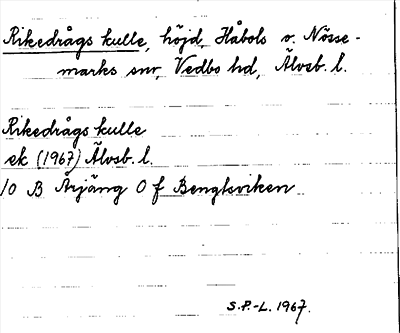 Rikedrågs kulle, höjd, Håbols o. Nösse-
marks snr, Vedbo hd, Älvsb. l.
Rikedrågs kulle
ek (1967) Älvsb. l.
10 B Årjäng 0 f Bengtsviken
S.P.-L. 1967.